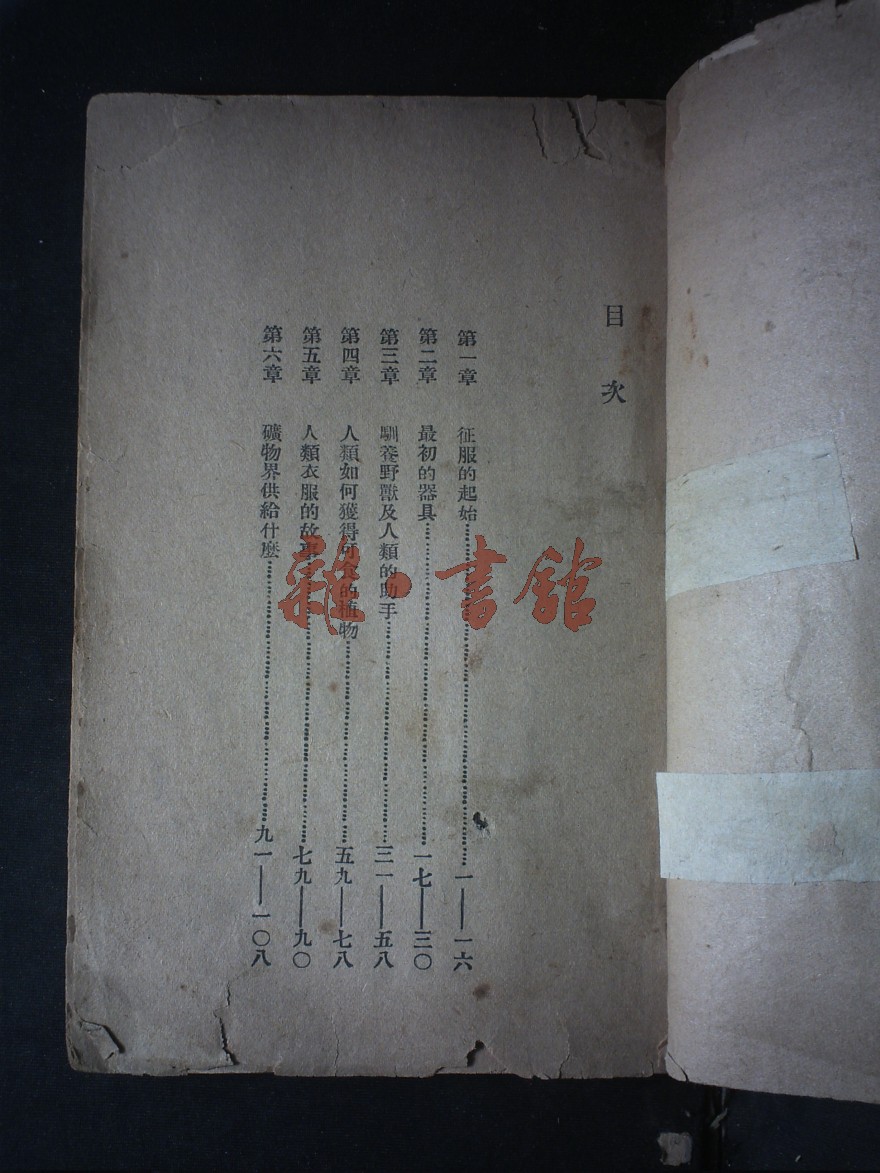 目次
第一章 征服的起始……一——一六
第二章 最初的器具……一七——三〇
第三章 馴養野獸及人類的助手……三一——五八
第四章 人類如何獲得可食的植物……五九——七八
第五章 人類衣服的故事……七九——九〇
第六章 礦物界供給什麼……九一——一〇八
雜·書館